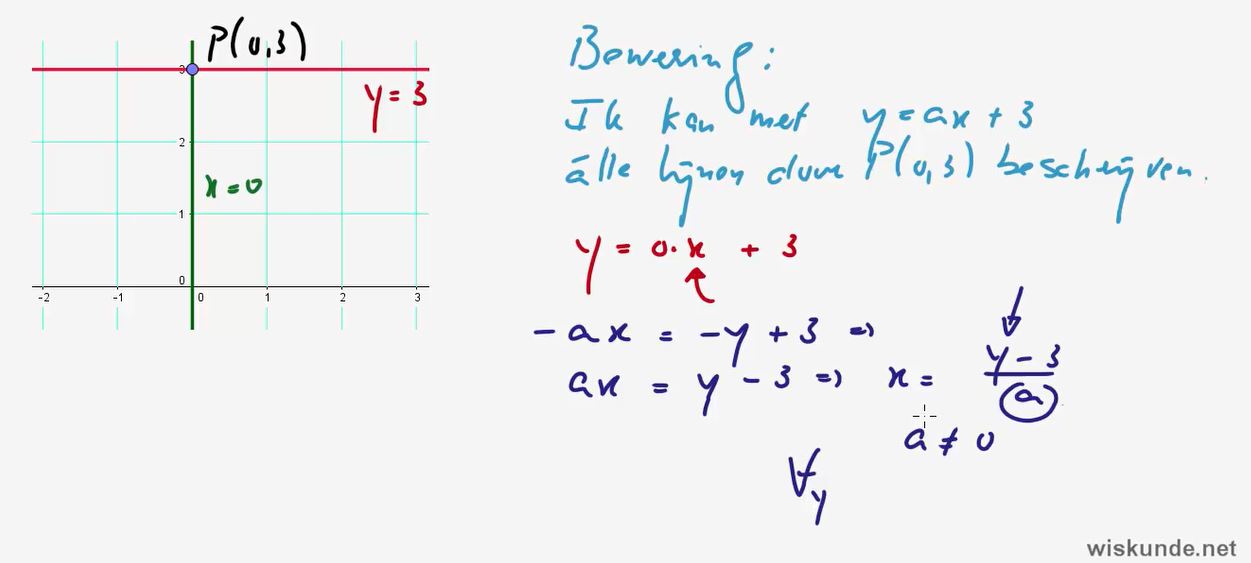 P(0,3)
y = 3
x = 0
3
2
1
0
-2 -1 0 1 2 3
Bewering:
Ik kan met y = ax + 3
álle lijnen door P(0,3) beschrijven.
y = 0·x + 3
-ax = -y + 3 ⇒
ax = y - 3 ⇒ x = y - 3 / a
a ≠ 0
∀y
wiskunde.net